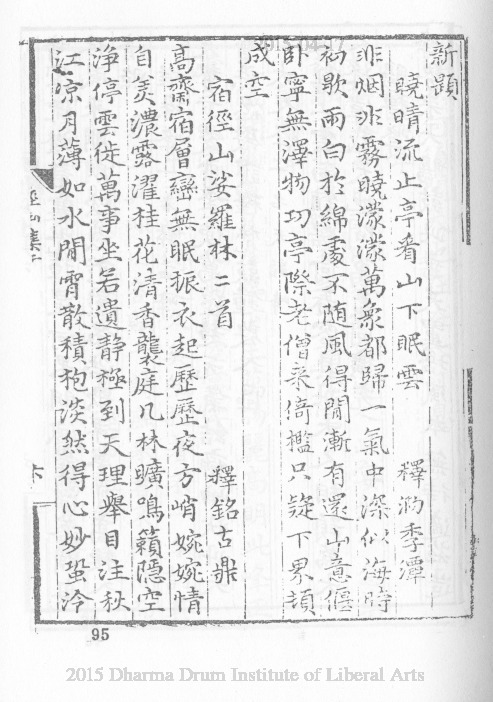 新題
曉晴流止亭看山下眠雲　釋泐季潭
非烟非霧曉濛濛萬象都歸一氣中深似海時
初歇雨白於綿處不随風得閒漸有還山意偃
卧寧無澤物功亭際老僧来倚檻只疑下界頓
成空
宿徑山娑羅林二首　釋銘古鼎
高齋宿層巒無眠振衣起歷歷夜方峭婉婉情
自美濃露濯桂花清香襲庭几林曠鳴籟隱空
淨停雲徙萬事坐若遺靜極到天理舉目注秋
江凉月薄如水閒霄散積抱淡然得心妙蛩泠
徑山集二
95
2015 Dharma Drum Institute of Liberal Arts